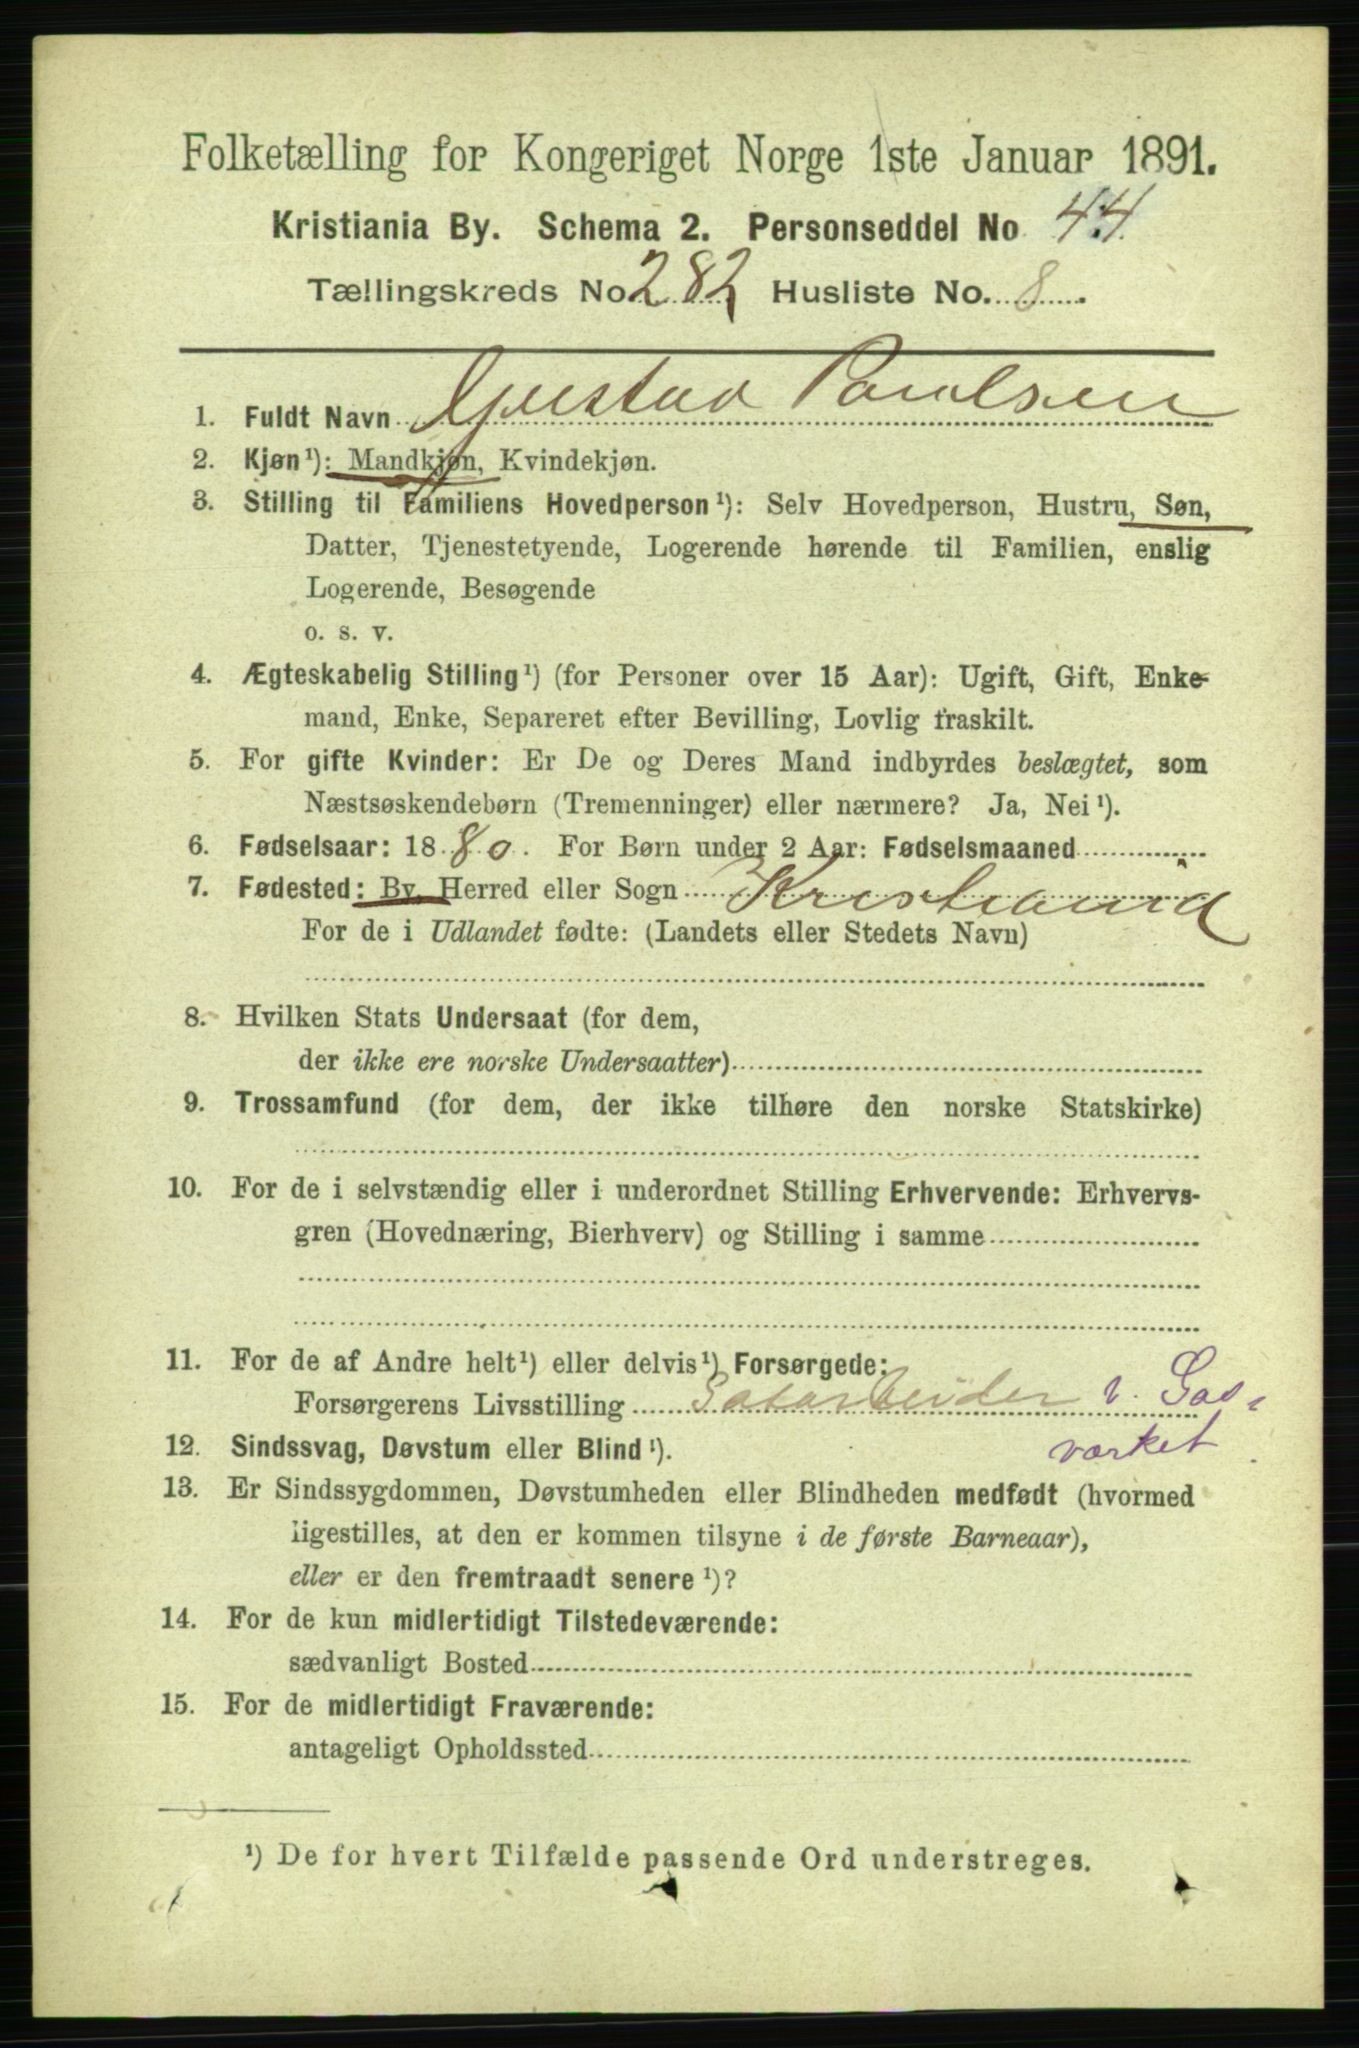 Folketælling for Kongeriget Norge 1ste Januar 1891.
Kristiania By. Schema 2. Personseddel No 44.
Tællingskreds No 282 Husliste No. 8.
1. Fuldt Navn Gustav Paulsen
2. Kjøn¹): Mandkjøn, Kvindekjøn.
3. Stilling til Familiens Hovedperson¹): Selv Hovedperson, Hustru, Søn,
Datter, Tjenestetyende, Logerende hørende til Familien, enslig
Logerende, Besøgende
o. s. v.
4. Ægteskabelig Stilling¹) (for Personer over 15 Aar): Ugift, Gift, Enke-
mand, Enke, Separeret efter Bevilling, Lovlig fraskilt.
5. For gifte Kvinder: Er De og Deres Mand indbyrdes beslægtet, som
Næstsøskendebørn (Tremenninger) eller nærmere? Ja, Nei¹).
6. Fødselsaar: 1880. For Børn under 2 Aar: Fødselsmaaned
7. Fødested: By, Herred eller Sogn Kristiania
For de i Udlandet fødte: (Landets eller Stedets Navn)
8. Hvilken Stats Undersaat (for dem,
der ikke ere norske Undersaatter)
9. Trossamfund (for dem, der ikke tilhøre den norske Statskirke)
10. For de i selvstændig eller i underordnet Stilling Erhvervende: Erhvervs-
gren (Hovednæring, Bierhverv) og Stilling i samme
11. For de af Andre helt¹) eller delvis¹) Forsørgede:
Forsørgerens Livsstilling Gasarbeider v. Gas-
værket
12. Sindssvag, Døvstum eller Blind¹).
13. Er Sindssygdommen, Døvstumheden eller Blindheden medfødt (hvormed
ligestilles, at den er kommen tilsyne i de første Barneaar),
eller er den fremtraadt senere¹)?
14. For de kun midlertidigt Tilstedeværende:
sædvanligt Bosted
15. For de midlertidigt Fraværende:
antageligt Opholdssted
¹) De for hvert Tilfælde passende Ord understreges.